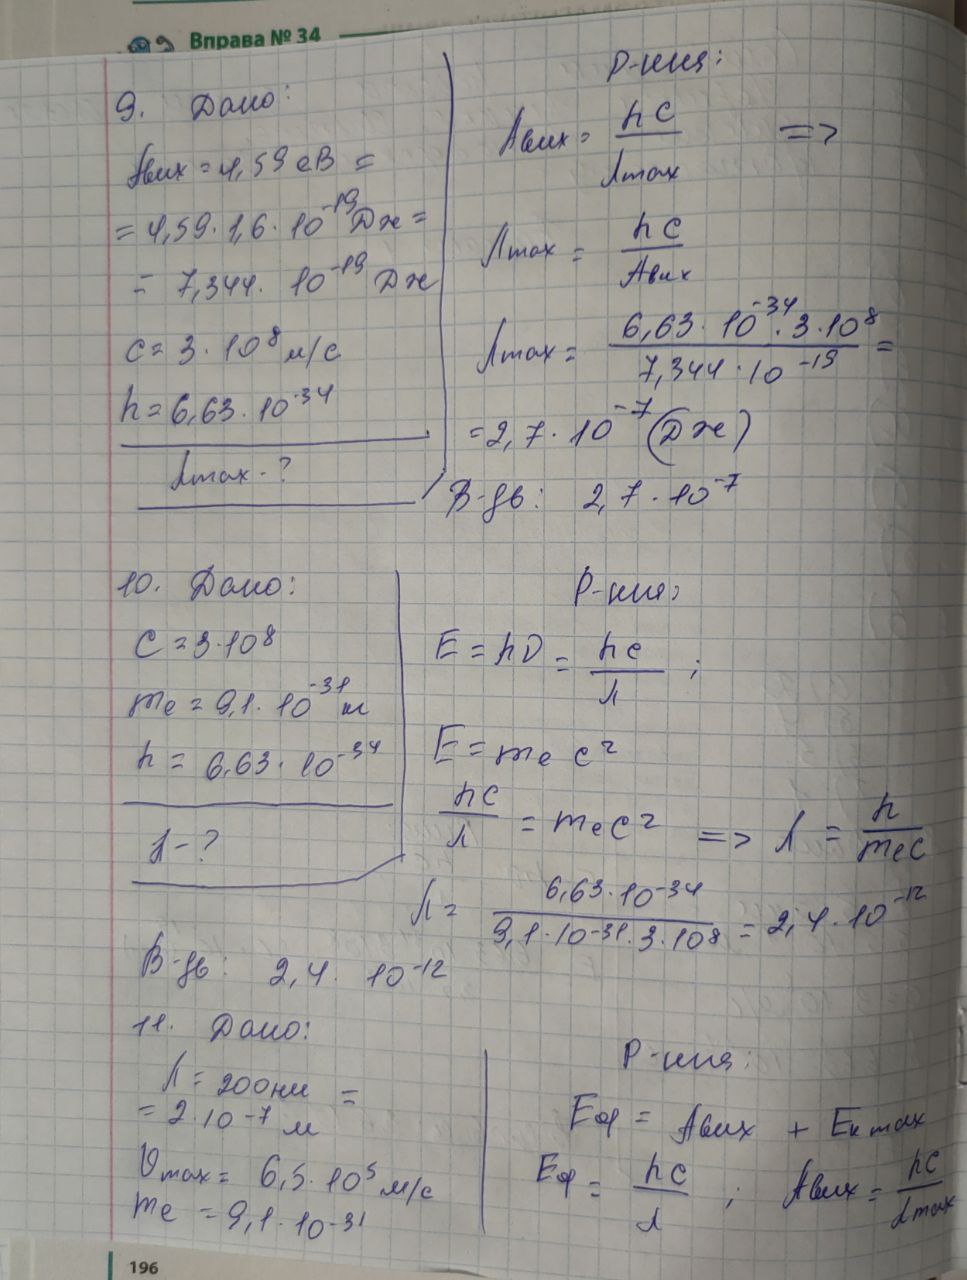 Вправа № 34
9. Дано:
Aвих = 4,59 еВ =
= 4,59 · 1,6 · 10^-19 Дж =
= 7,344 · 10^-19 Дж
c = 3 · 10^8 м/с
h = 6,63 · 10^-34
λmax - ?
Р-ння:
Aвих = hc/λmax =>
λmax = hc/Aвих
λmax = 6,63 · 10^-34 · 3 · 10^8 / 7,344 · 10^-19 =
= 2,7 · 10^-7 (Дж)
В-дь: 2,7 · 10^-7
10. Дано:
c = 3 · 10^8
me = 9,1 · 10^-31 м
h = 6,63 · 10^-34
λ - ?
Р-ння:
E = hν = hc/λ ;
E = me c²
hc/λ = mec² => λ = h/mec
λ = 6,63 · 10^-34 / 9,1 · 10^-31 · 3 · 10^8 = 2,4 · 10^-12
В-дь: 2,4 · 10^-12
11. Дано:
λ = 200 нм =
= 2 · 10^-7 м
υmax = 6,5 · 10^5 м/с
me = 9,1 · 10^-31
Р-ння:
Eф = Aвих + Eк max
Eф = hc/λ ; Aвих = hc/λmax
196